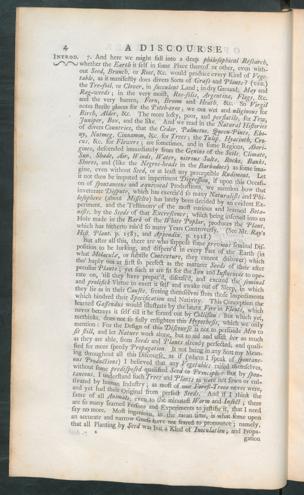 4 A DISCOURSE
Introd. 7. And here we might fall into a deep philosophical Research,
whether the Earth it self in some Place thereof or other, even with-
out Seed, Branch, or Root, &c. would produce every Kind of Vege-
table, as it manifestly does divers Sorts of Grass and Plants;
the Tre-foil, or Clover, in succulent Land; in dry Ground, May and
Rag-weeds; in the very moist, Argentina, Flags, &c.
and the very barren, Fern, Broom and Heath, &c. So Virgil
notes sterile places for the Pitch-tree;
Birch, Alder, &c. The more lofty, poor, and for Trees,
Juniper, Box, and the like. And we read in the Natural Histories
of divers Countries, that the Cedar, Palmetto, Pine, Ebo-
ny, Nutmeg, Cinnamon, &c. for Trees; the Tulip, Hyacinth, Cro-
cus, &c. for Flowers; are sometimes, and in some Regions,
descended immediately from the Genius of the Soils, Climate,
Sun, Shade, Air, Winds, Water, nitrous Salts, Rocks, Banks,
Shores, and (like the in the Barbadoes) as some ima-
gine, even without Seed, or at least any perceptible Rudiment. Let
it not then be imputed an impertinent Digression, if upon this Occasi-
on of spontaneous and Productions, we mention how that
inveterate Dispute, which has exercis'd so many Naturalists and Phi-
losophers (about has lately been decided by an evident Ex-
periment, and the Testimony of the most curious and learned Bota-
nists; by the Seeds of that Excrescence; which being infused into an
Hole made in the Bark of the White Poplar, produces the Plant,
which has hitherto rais'd so many Years Controversy. (See Mr. Ray's
Hist. Plant. p. 1583; and Appendix. p. 1918.)
But after all this, there are who suppose some previous seminal Dis-
position to be lurking, and dispers'd in every Part of the Earth (in
what Moleculæ, or subtile Contexture, they cannot discover) which
do haply not at first so perfect as the maturer Seeds of their after
peculiar Plants; yet such as are fit for the Sun and Influences to ope-
rate on, 'till they have prepar'd, and excited the seminal
and prolifick Virtue to exert it self and awake out of Sleep, in which
they lie as in their Causes, freeing themselves from those Impediments
which hindred their Specification and Nativity. This Conception the
learned Gassendus would illustrate by the latent Fire in Flints, which
never betrays it self till it be forced out by Collision: But which yet,
methinks, does not so fully enlighten this Hypothesis, which we only
mention: For the Design of this Discourse is not to persuade Men to
sit still, and let Nature work alone, but to aid and assist her as much
as they are able, from Seeds and Plants already perfected, and quali-
fied for more speedy Propagation. It not being in any sort my Mean-
ing throughout all this Discourse, as if (where I speak of spontane-
ous Productions) I believed that any Vegetables raised themselves,
without some predisposed qualified Seed or Principle: But by spon-
taneous, I understand such Trees and Plants as were not sown or cul-
tivated by human Industry; as most of our Forest-Trees never were,
and yet had their Original from perfect Seeds. And if I think the
same of all Animals, even to the minutest Worm and Insect; there
are so many learned Persons and Experiments to justifie it, that I need
say no more. Most ingenious, in the mean time, is what some upon
an accurate and narrow Guess have not feared to pronounce; namely,
that all Planting by Seed was but a Kind of Inoculation; and Propa-
gation